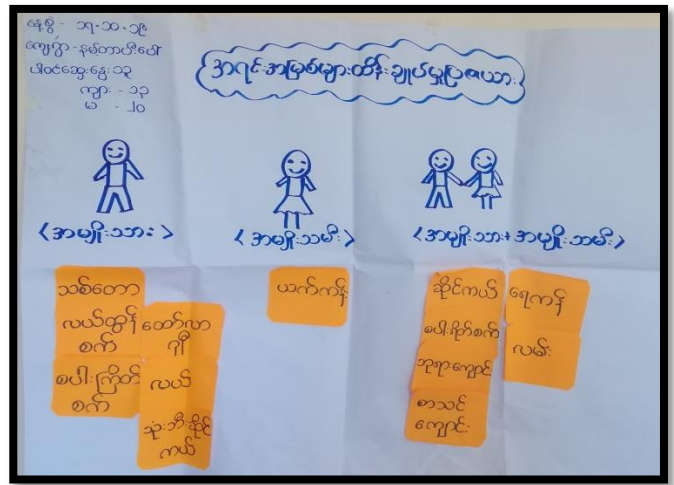 နေ့စွဲ - ၁၅.၁၀.၁၉
ကျေးရွာ - နမ်တာယီပေါ်
ပါဝင်ဆွေးနွေးသူ
ကျား - ၁၃
မ - ၂၀
အရင်းအမြစ်များထိန်းချုပ်မှုပြဇယား
<အမျိုးသား>
<အမျိုးသမီး>
<အမျိုးသား+အမျိုးသမီး>
သစ်တော
လယ်ထွန်
စက်
စပါးကြိတ်
စက်
ထော်လာ
ဂျီ
လယ်
သုံးဘီးဆိုင်
ကယ်
ယက်ကန်း
ဆိုင်ကယ်
စပါးရိတ်စက်
ဘုရားကျောင်း
စာသင်
ကျောင်း
ရေကန်
လမ်း